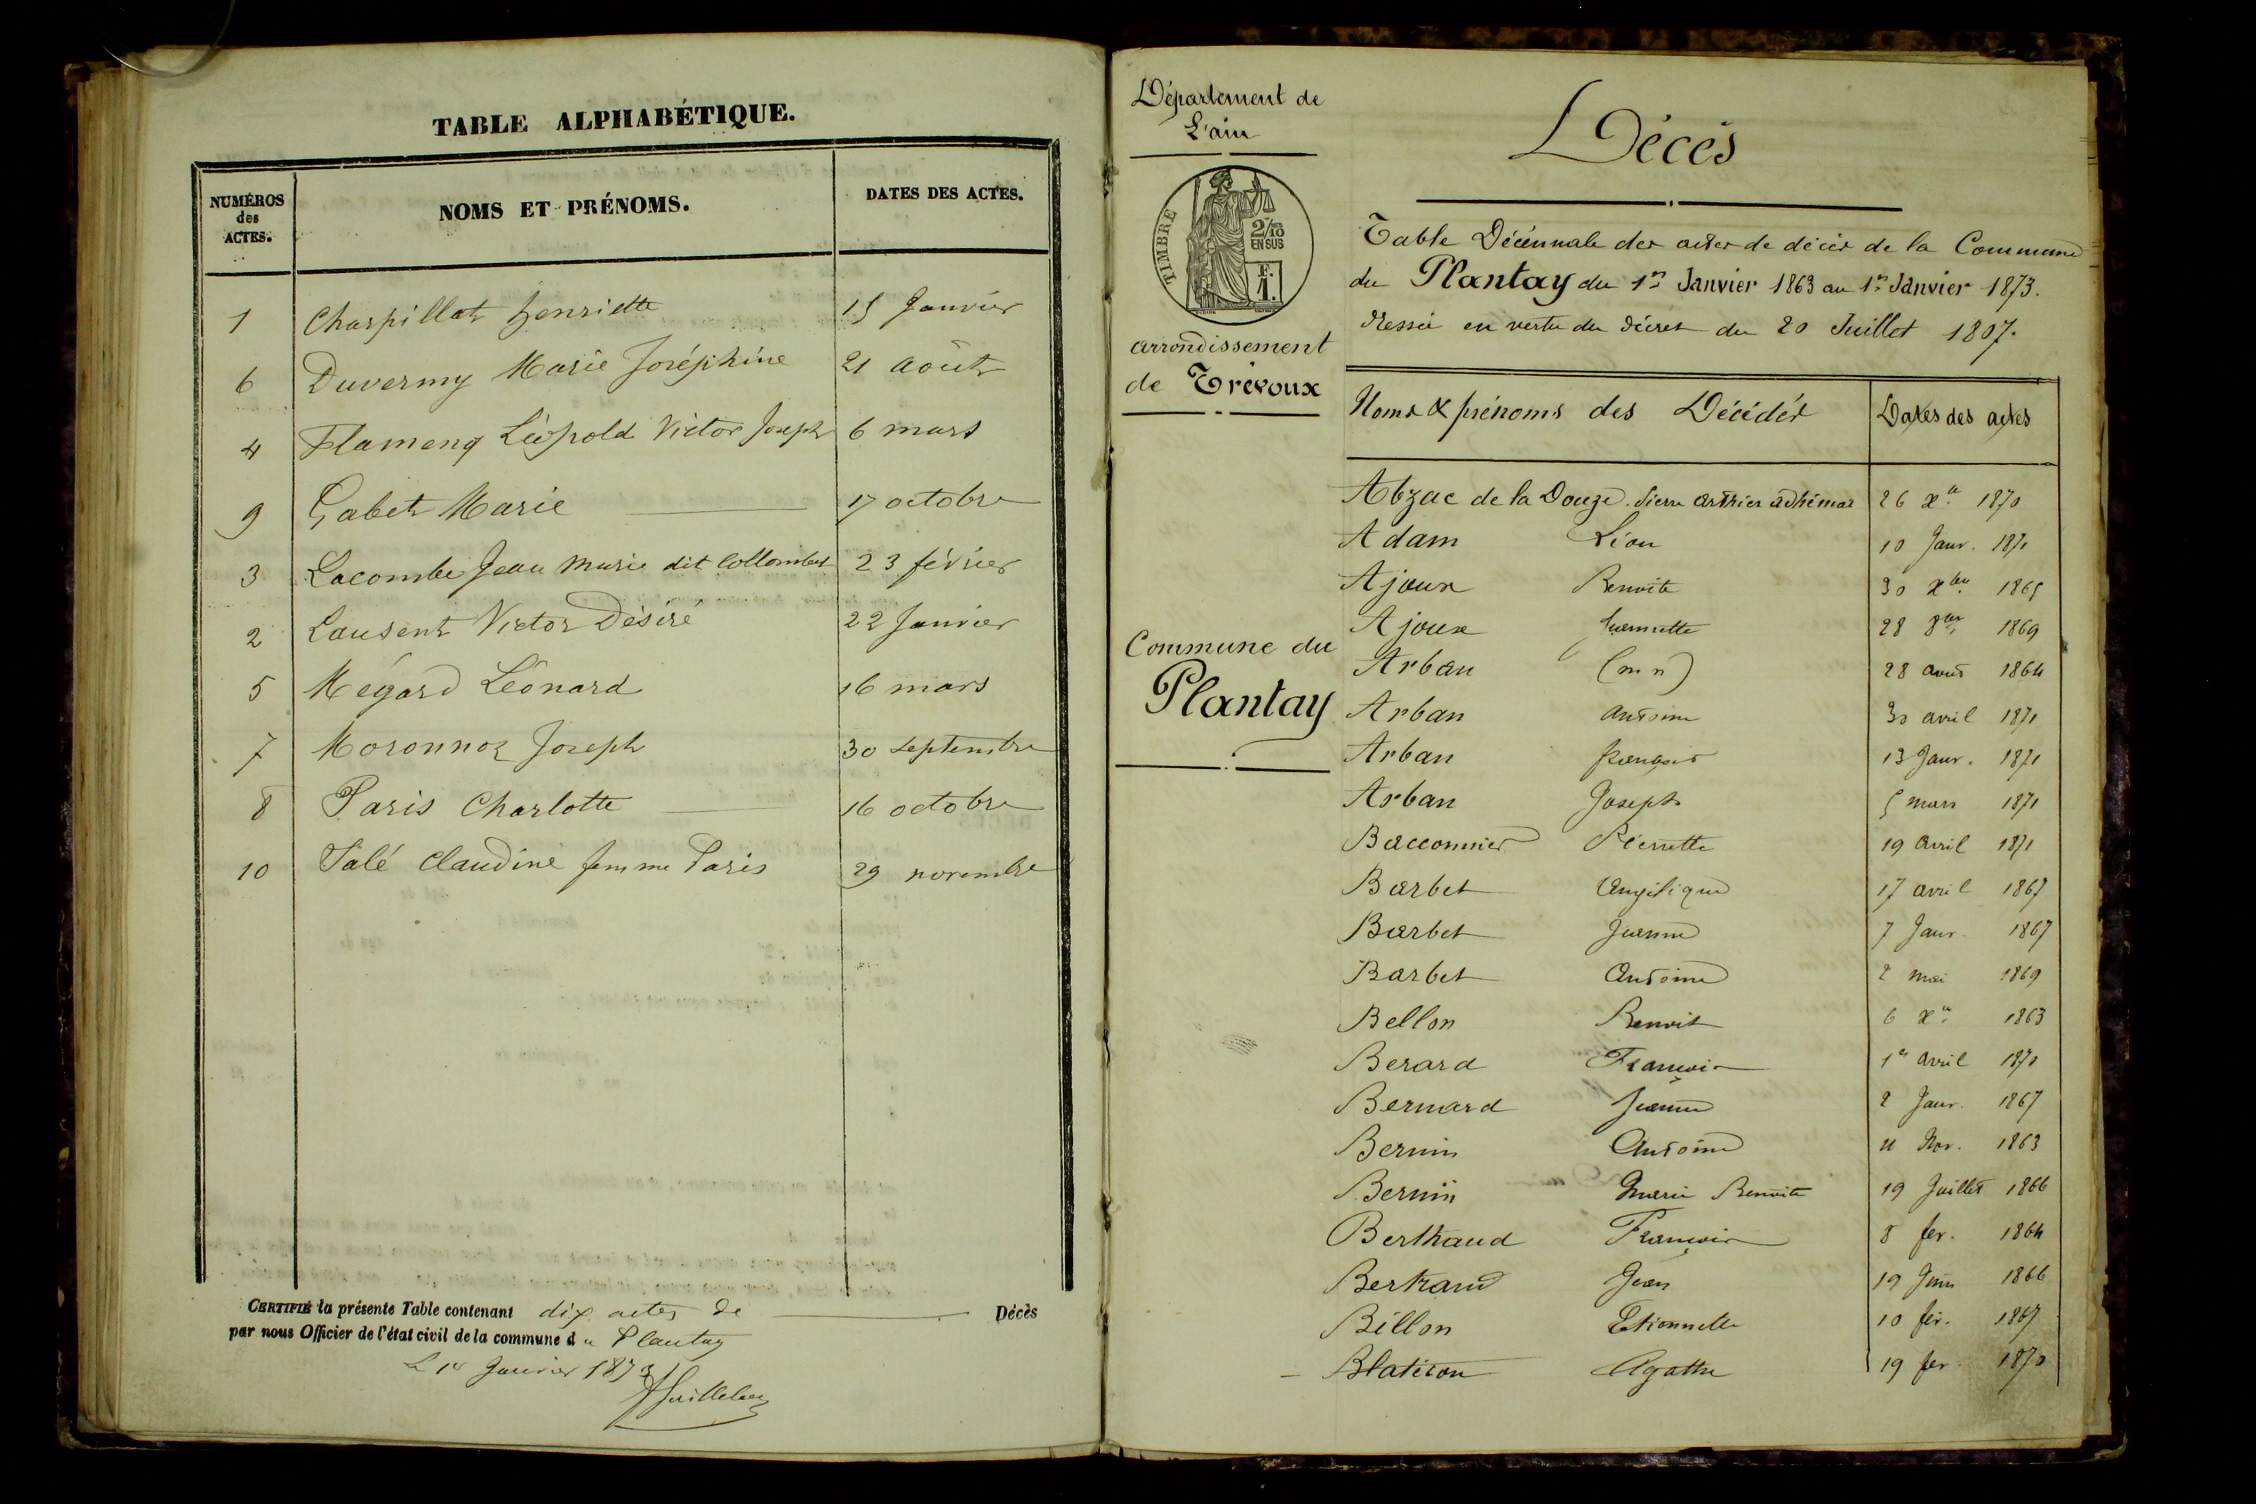 TABLE ALPHABÉTIQUE.
NUMÉROS des ACTES. NOMS ET PRÉNOMS. DATES DES ACTES.
1 Charpillat henriette 15 Janvier
6 Duvermy Marie Joséphine 21 août
4 Flamenq Léopold Victor Joseph 6 mars
9 Gabet Marie 17 octobre
3 Lacombe Jean Marie dit Collombet 23 février
2 Laurent Victor Désiré 22 Janvier
5 Mégard Léonard 16 mars
7 Moronnoz Joseph 30 septembre
8 Paris Charlotte 16 octobre
10 Talé Claudine femme Paris 29 novembre
CERTIFIÉ la présente Table contenant dix actes de Décès
par nous Officier de l'état civil de la commune du Plantay
Le 1er Janvier 1873
Département de
L'ain
TIMBRE
2/10 EN SUS
F. 1.
arrondissement
de Trévoux
Commune du
Plantay
Décès
Table Décennale des actes de décès de la Commune
du Plantay du 1er Janvier 1863 au 1er Janvier 1873.
dressée en vertu du décret du 20 Juillet 1807.
Noms & prénoms des Décédés Dates des actes
Abzac de la Douze Pierre adhémar 26 xbre 1870
Adam Léon 10 Janv. 1871
Ajoux Benoite 30 xbre 1865
Ajoux Jeannette 28 8bre 1869
Arban (m n) 28 août 1864
Arban antoine 30 avril 1871
Arban françois 13 Janv. 1871
Arban Joseph 5 mars 1871
Bacconnier Pierrette 19 avril 1871
Barbet Angélique 17 avril 1867
Barbet Jeanne 7 Janv. 1867
Barbet Antoine 2 mai 1869
Bellon Benoit 6 xbre 1863
Berard François 1er avril 1870
Bernard Jeanne 2 Janv. 1867
Bernin Antoine 11 Nov. 1863
Bernin Marie Benoite 19 Juillet 1866
Berthaud François 8 fev. 1864
Bertrand Jean 19 Juin 1866
Billon Etiennette 10 fév. 1867
Blaticon Agathe 19 fev 1870